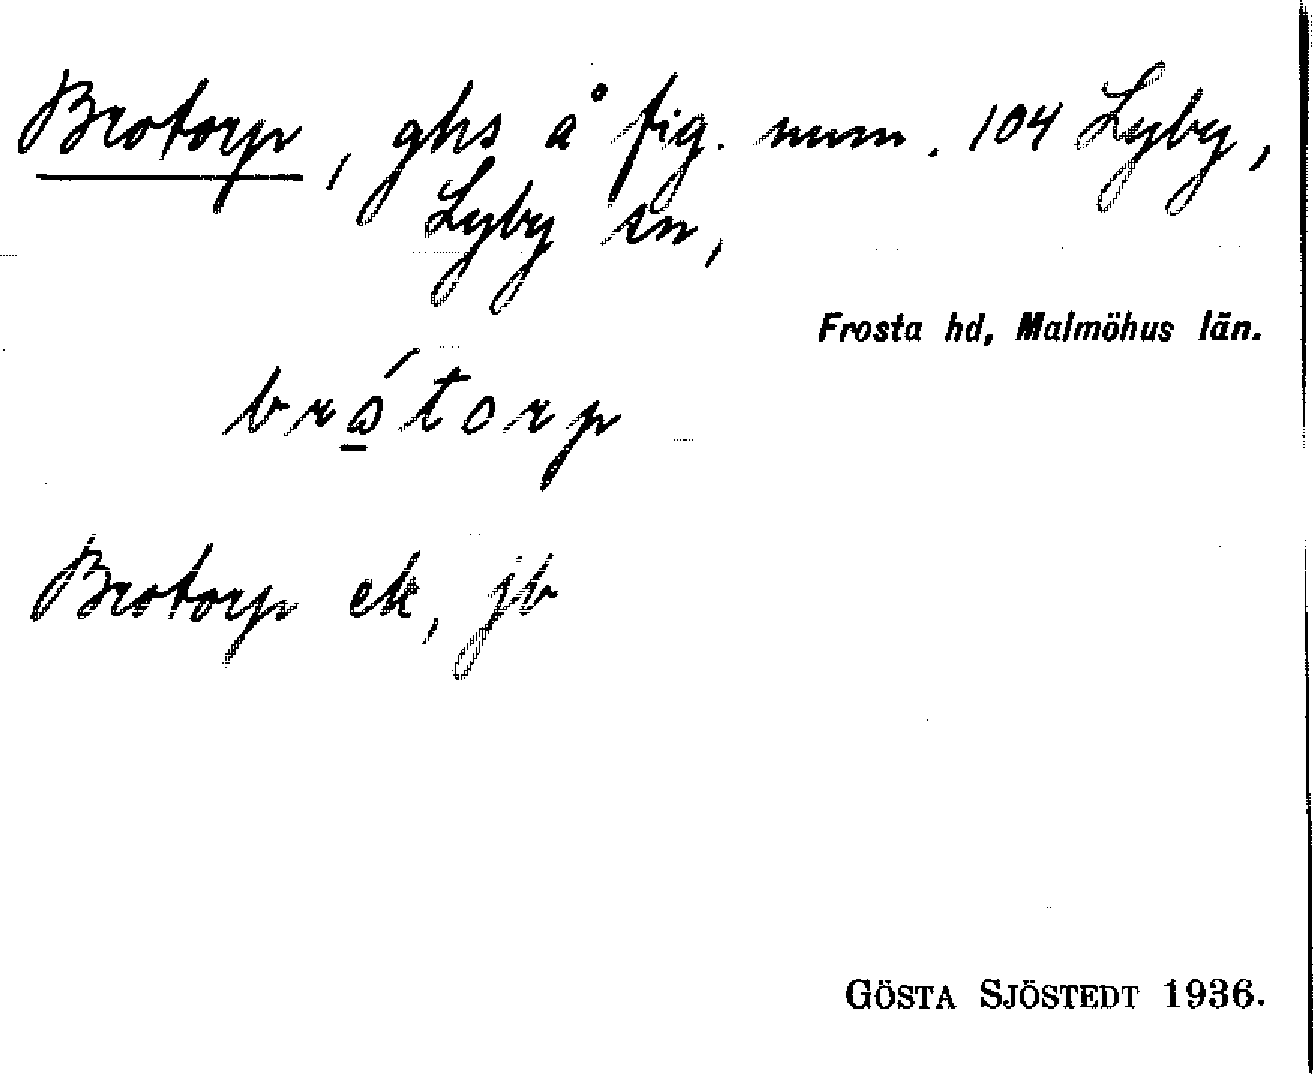 Brotorp, ghs å fig. num. 104 Lyby,
Lyby sn,
Frosta hd, Malmöhus län.
brа̱́torp
Brotorp ek, jb
GÖSTA SJÖSTEDT 1936.